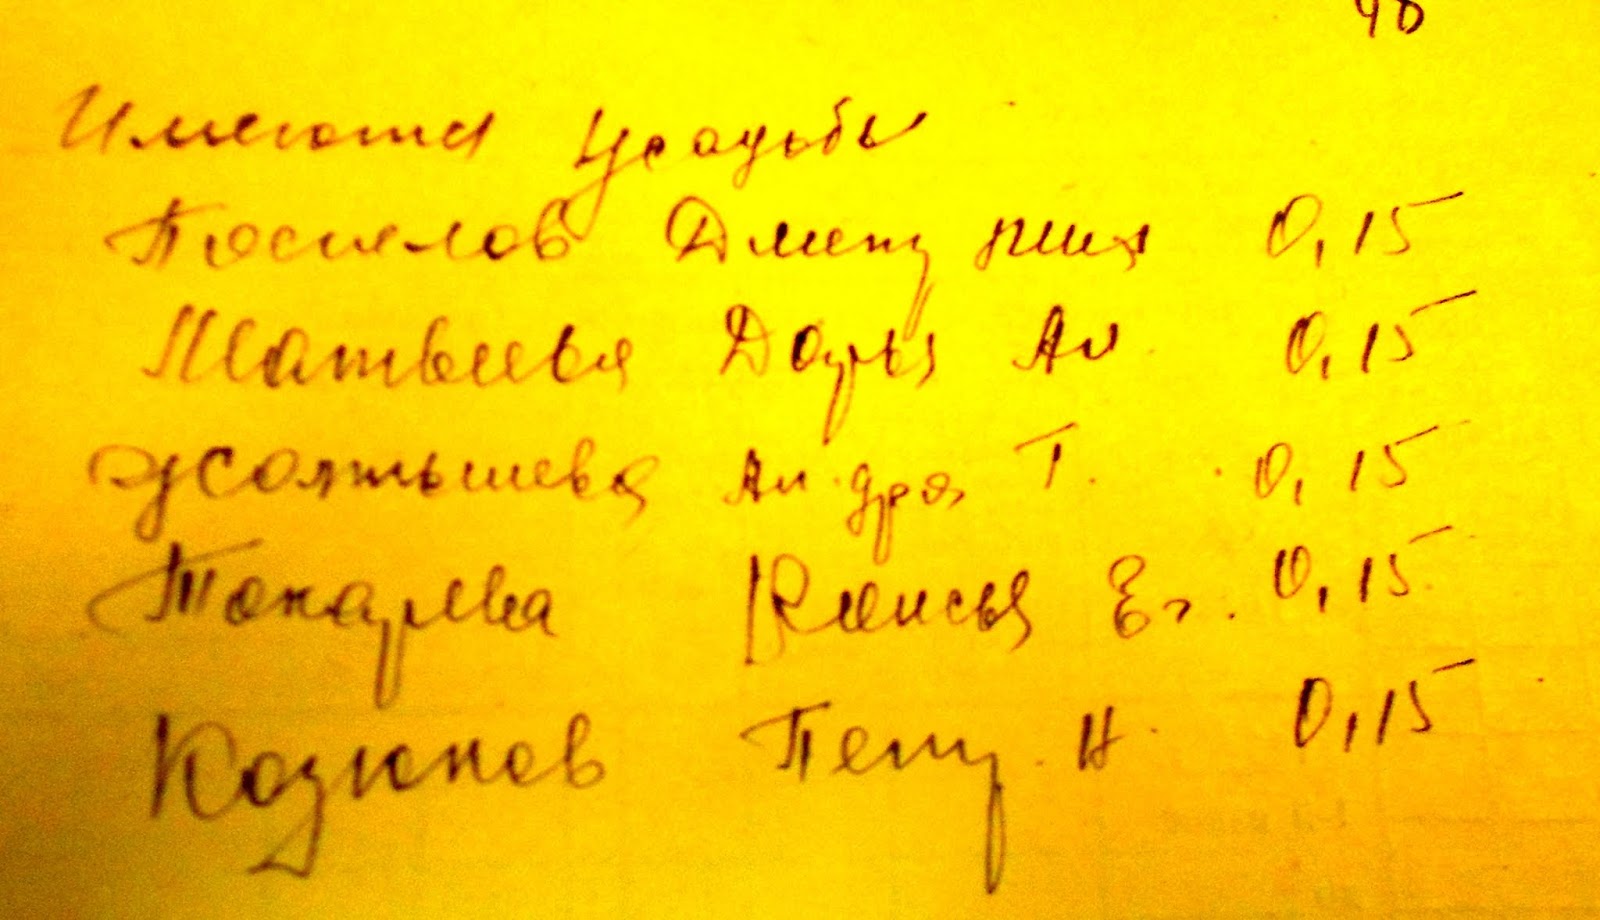 40
Имеются Усадьбы
Поспелов Дмитр 0,15
Матвеева Дарья Ал. 0,15
Жолтышева Ал-дра Т. 0,15
Токарева Ксенья Ег. 0,15
Козюков Петр. Н. 0,15